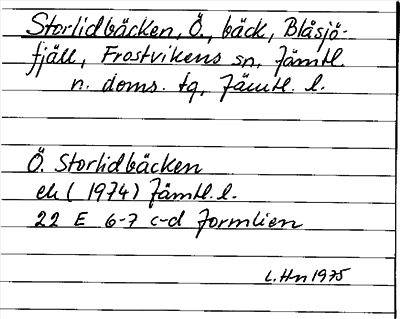 Storlidbäcken, Ö., bäck, Blåsjö-
fjäll, Frostvikens sn, Jämtl.
n. doms. tg, Jämtl. l.
Ö. Storlidbäcken
ek (1974) Jämtl. l.
22 E 6-7 c-d Jormlien
L.Hn 1975